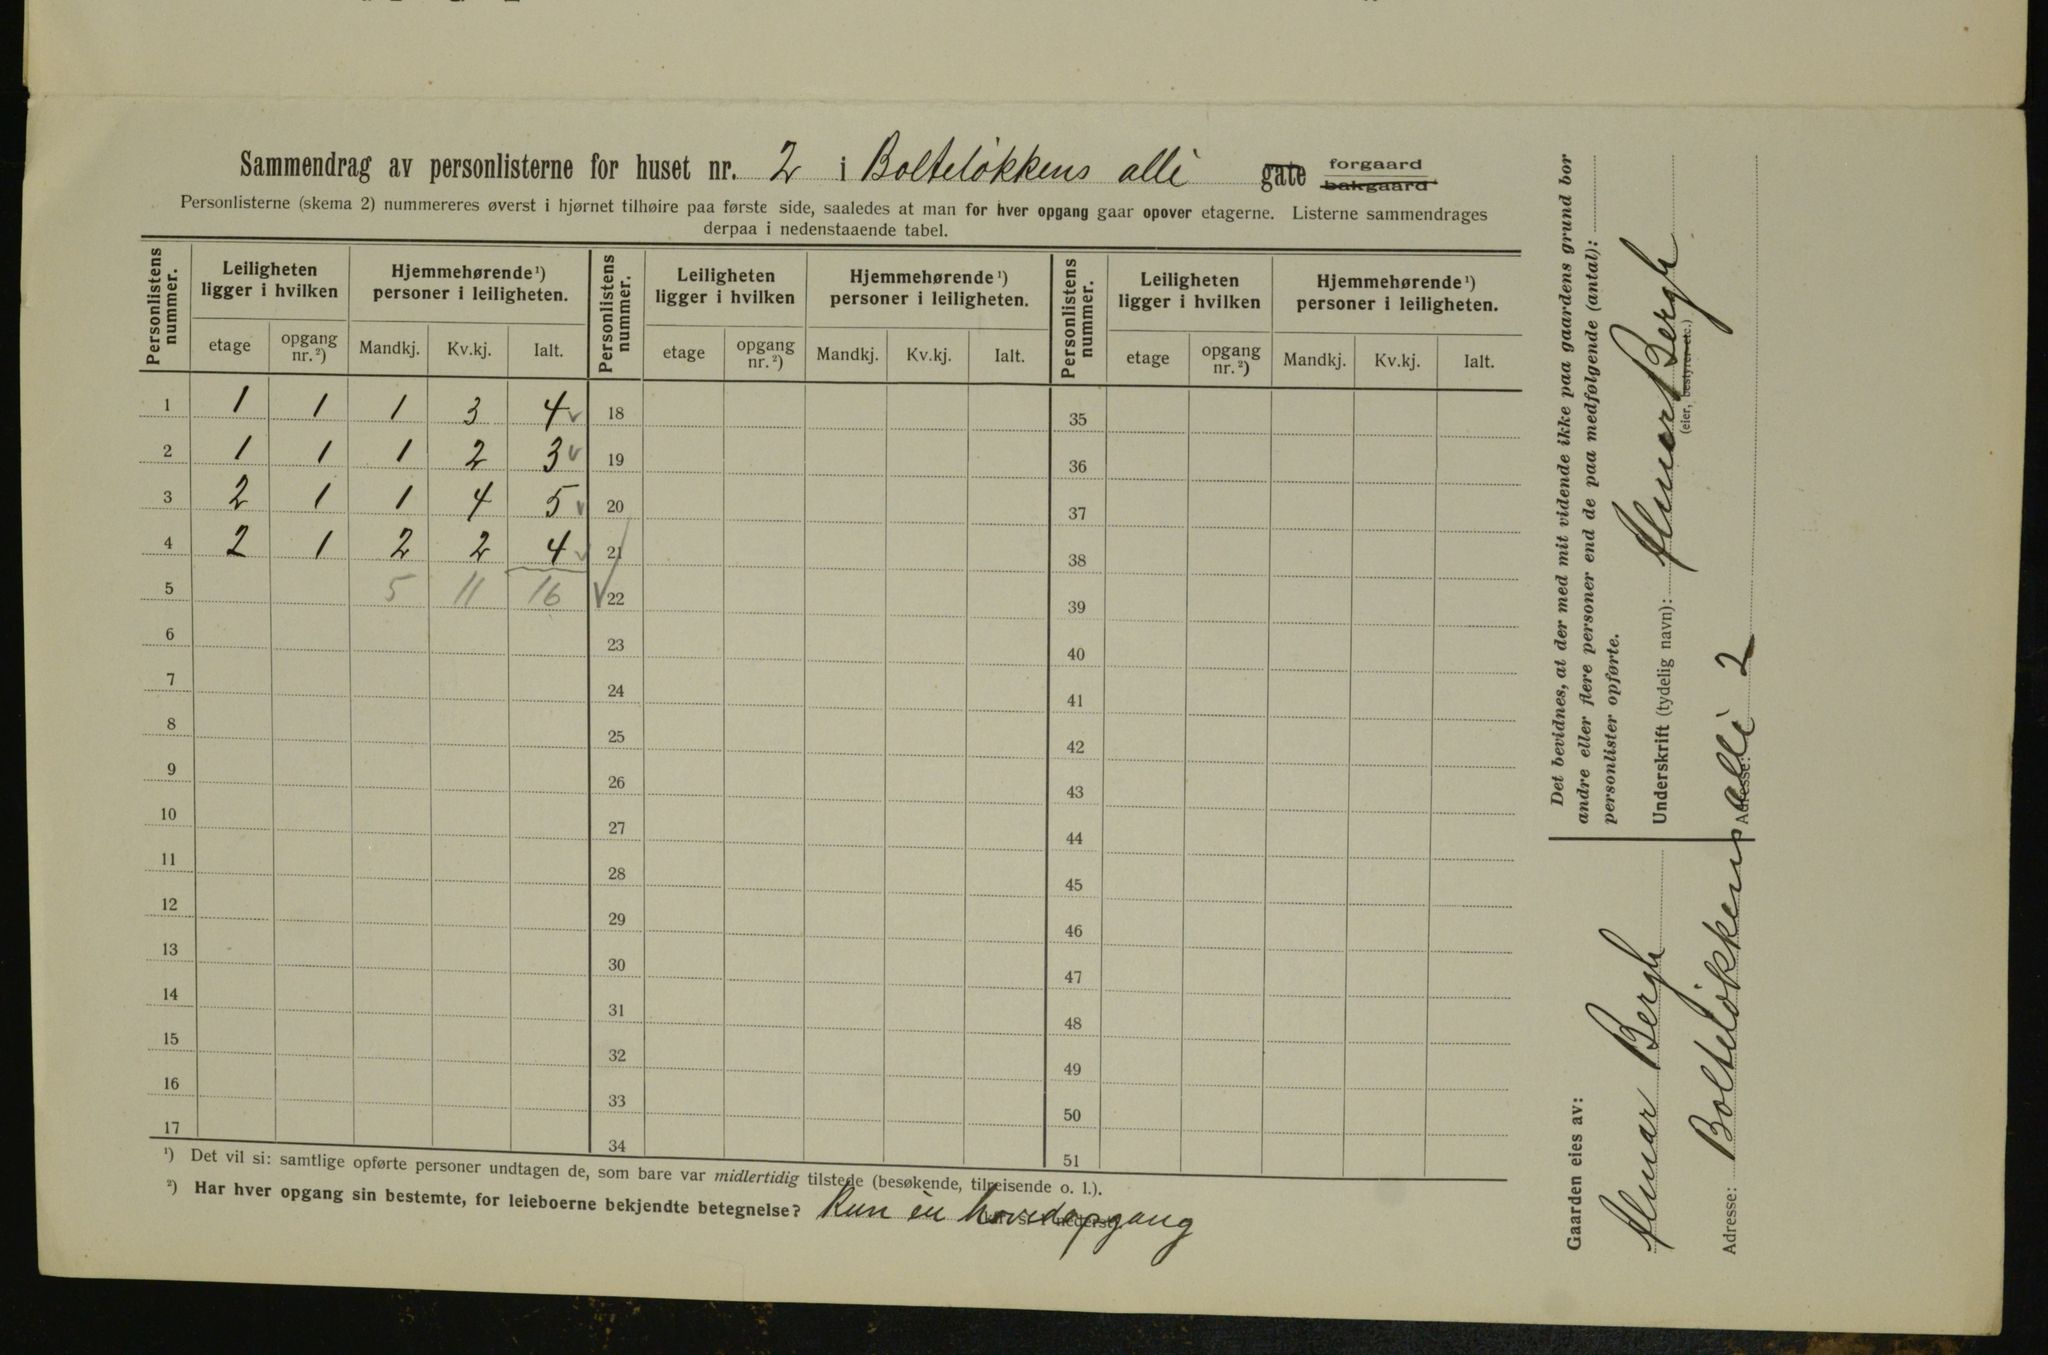 Sammendrag av personlisterne for huset nr. 2 i Bolteløkkens alle gate forgaard bakgaard
Personlisterne (skema 2) nummereres øverst i hjørnet tilhøire paa første side, saaledes at man for hver opgang gaar opover etagerne. Listerne sammendrages
derpaa i nedenstaaende tabel.
Personlistens nummer. Leiligheten ligger i hvilken Hjemmehørende ¹) personer i leiligheten. Personlistens nummer. Leiligheten ligger i hvilken Hjemmehørende ¹) personer i leiligheten. Personlistens nummer. Leiligheten ligger i hvilken Hjemmehørende ¹) personer i leiligheten.
etage opgang nr. ²) Mandkj. Kv.kj. Ialt. etage opgang nr. ²) Mandkj. Kv.kj. Ialt. etage opgang nr. ²) Mandkj. Kv.kj. Ialt.
1 1 1 1 3 4 18 35
2 1 1 1 2 3 19 36
3 2 1 1 4 5 20 37
4 2 1 2 2 4 21 38
5 5 11 16 22 39
6 23 40
7 24 41
8 25 42
9 26 43
10 27 44
11 28 45
12 29 46
13 30 47
14 31 48
15 32 49
16 33 50
17 34 51
¹) Det vil si: samtlige opførte personer undtagen de, som bare var midlertidig tilstede (besøkende, tilreisende o. l.).
²) Har hver opgang sin bestemte, for leieboerne bekjendte betegnelse? Kun en hovedopgang
Det bevidnes, at der med mit vidende ikke paa gaardens grund bor
andre eller flere personer end de paa medfølgende (antal):
personlister opførte.
Underskrift (tydelig navn): Almar Bergh
(eier, bestyrer etc.)
Adresse:
Gaarden eies av:
Almar Bergh
Adresse: Bolteløkkens alle 2